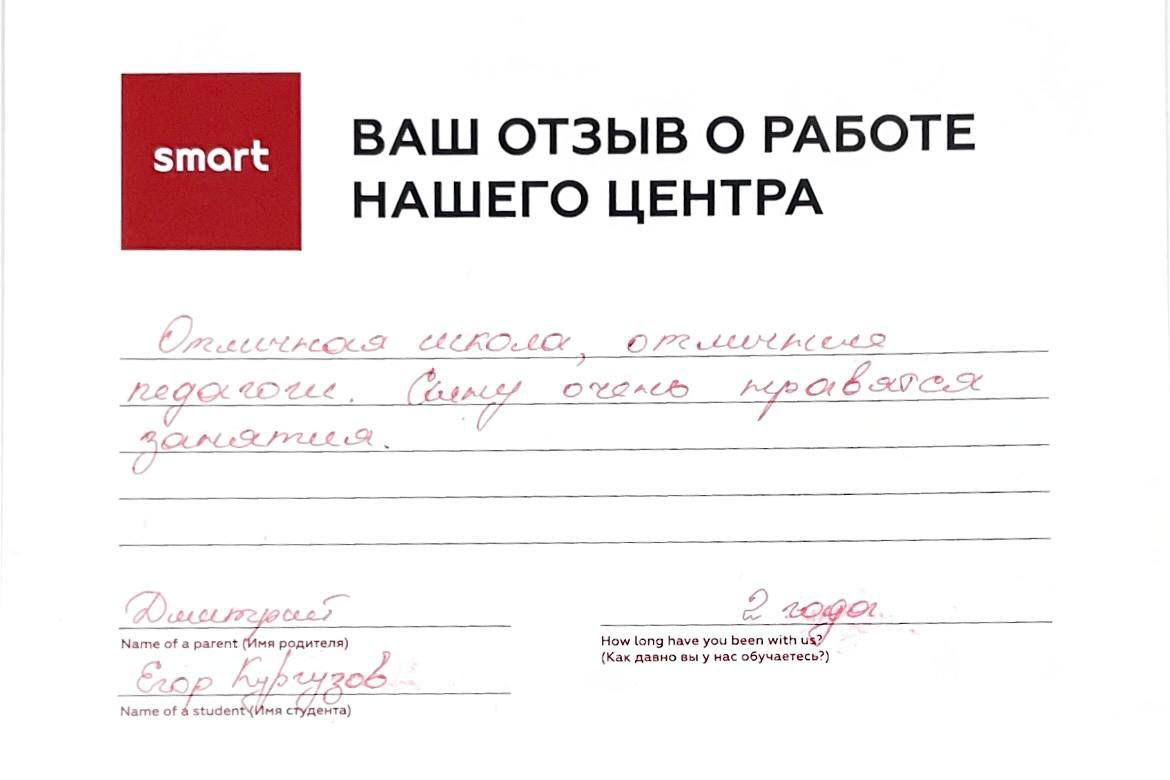 smart
ВАШ ОТЗЫВ О РАБОТЕ
НАШЕГО ЦЕНТРА
Отличная школа, отличные
педагоги. Сыну очень нравятся
занятия.
Дмитрий
Name of a parent (Имя родителя)
2 года.
How long have you been with us?
(Как давно вы у нас обучаетесь?)
Егор Кургузов
Name of a student (Имя студента)